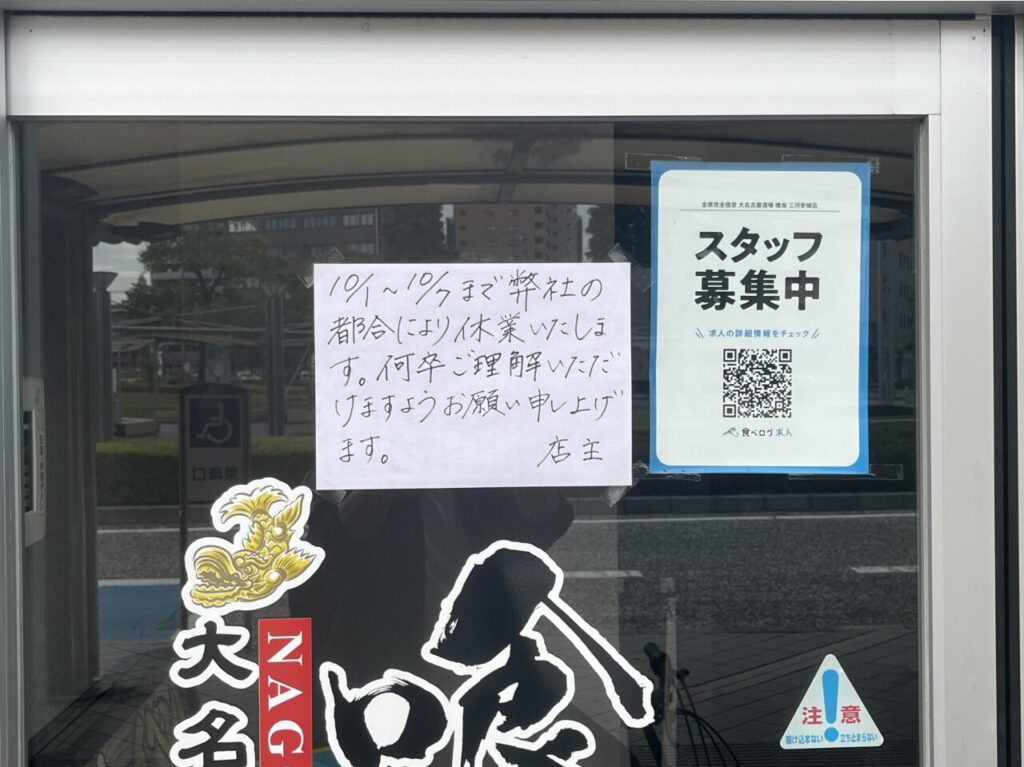 10/1～10/7まで弊社の
都合により休業いたしま
す。何卒ご理解いただ
けますようお願い申し上げ
ます。 店主
全席完全個室 大名古屋酒場 喰海 三河安城店
スタッフ
募集中
求人の詳細情報をチェック
食べログ 求人
大名
NAG
注意
駆け込まない 立ち止まらない